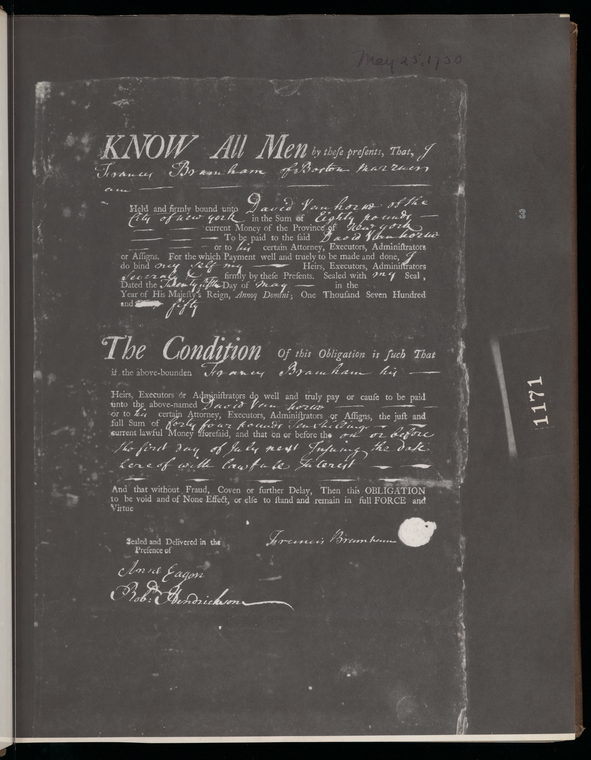 May 25, 1750
KNOW All Men by these presents, That, I
Francis Bramham of Boston Marriner
am
Held and firmly bound unto David Van horne of the
City of new york in the Sum of Eighty pounds
current Money of the Province of New york
To be paid to the said David Van horne
or to his certain Attorney, Executors, Administrators
or Assigns. For the which Payment well and truely to be made and done, I
do bind my self my Heirs, Executors, Administrators
firmly by these Presents. Sealed with my Seal,
Dated the Twenty fifth Day of May in the
Year of His Majesty's Reign, Annoq Domini; One Thousand Seven Hundred
and fifty
The Condition Of this Obligation is such That
if the above-bounden Francis Bramham his
Heirs, Executors or Administrators do well and truly pay or cause to be paid
unto the above-named David Van horne
or to his certain Attorney, Executors, Administrators or Assigns, the just and
full Sum of forty four pounds Ten shillings
current lawful Money aforesaid, and that on or before the on or before
the first day of July next Insuing the date
hereof with lawfull Interest
And that without Fraud, Coven or further Delay, Then this OBLIGATION
to be void and of None Effect, or else to stand and remain in full FORCE and
Virtue
Sealed and Delivered in the
Presence of
Francis Bramham
Anne Eagon
Robt. Hendrickson
3
1171